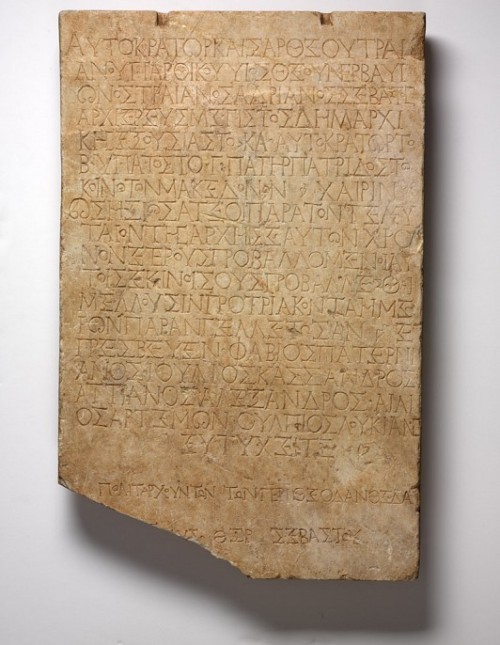 ΑΥΤΟΚΡΑΤΩΡΚΑΙΣΑΡΘΕΟΥΤΡΑΙ
ΑΝΟΥΠΑΡΘΙΚΟΥΥΙΟΣΘΕΟΥΝΕΡΒΑΥΙ
ΩΝΟΣΤΡΑΙΑΝΟΣΑΔΡΙΑΝΟΣΣΕΒΑΣΤ
ΑΡΧΙΕΡΕΥΣΜΕΓΙΣΤΟΣΔΗΜΑΡΧΙ
ΚΗΣΕΞΟΥΣΙΑΣΤΟ·ΚΑ·ΑΥΤΟΚΡΑΤΩΡΤΟ
ΒΥΠΑΤΟΣΤΟ·Γ·ΠΑΤΗΡΠΑΤΡΙΔΟΣΤΩ
ΚΟΙΝΩΤΩΝΜΑΚΕΔΟΝΩΝ ΧΑΙΡΙΝ
ΤΑΙΟΝΤΗΣΑΡΧΗΣΕΑΥΤΩΝΧΡΟ
ΝΟΝΕΤΕΡΟΥΣΠΡΟΒΑΛΛΟΜΕΝΟΙΑΥ
ΤΟΙΣΕΚΙΝΟΙΣΟΥΣΠΡΟΒΑΛΛΕΣΘΑΙ
ΜΕΛΛΟΥΣΙΝΠΡΟΤΡΙΑΚΟΝΤΑΗΜΕ
ΡΩΝΠΑΡΑΝΓΕΛΛΕΤΩΣΑΝ
ΠΡΕΣΒΕΥΕΝΦΑΒΙΟΣΠΑΤΕΡΝΙ
ΑΝΟΣΙΟΥΛΙΟΣΚΑΣΣΑΝΔΡΟΣ
ΑΛΕΞΑΝΔΡΟΣ·ΑΙΛΙ
ΟΣΑΡΤΕΜΩΝ·ΟΥΛΠΙΟΣΛΟΥΚΙΑΝΟΣ
ΕΥΤΥΧΕΙΤΕ
ΠΟΛΙΤΑΡΧΟΥΝΤΩΝ ΤΩΝΠΕΡΙΘΕΟΔΑΝΘΕΔΑ
ΣΕΒΑΣΤΟΥ